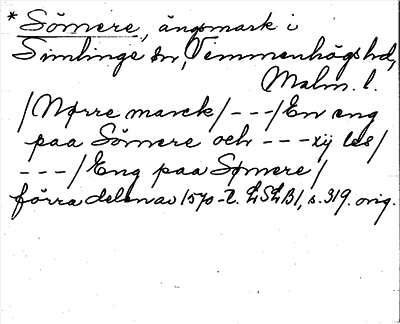 * Sömere, ängsmark i
Simlinge sn, Vemmenhögs hd,
Malm. l.
/Nørre marck/ - - - /En eng
paa Sömere och - - - xij les/
- - - /Eng paa Sømere/
förra delen av 1570-t. LSLB1, s. 319. orig.